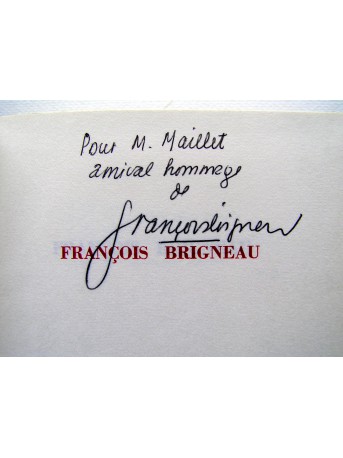 Pour M. Maillet
amical hommage
de
françois brigneau
FRANÇOIS BRIGNEAU